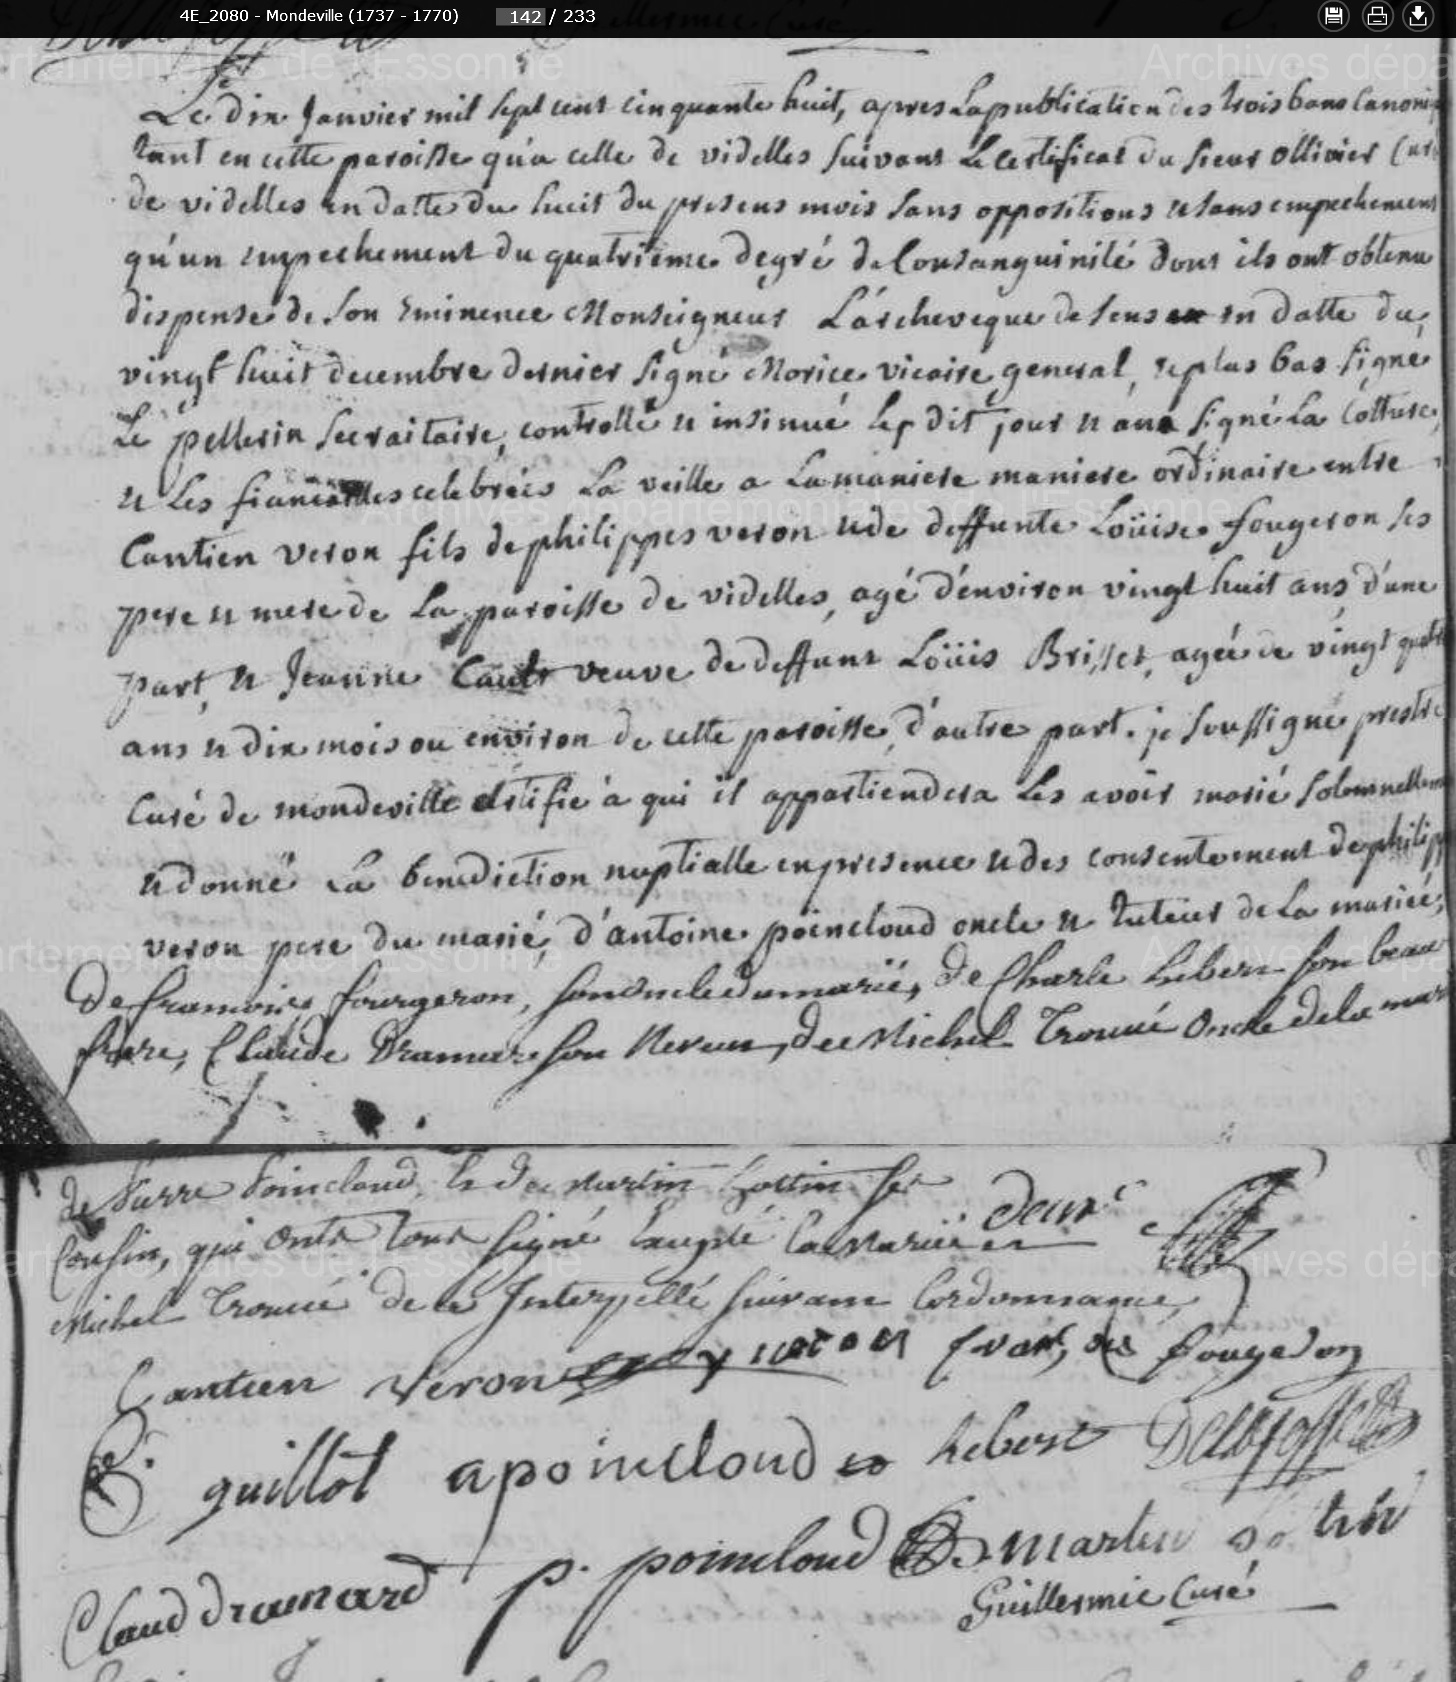 4E_2080 - Mondeville (1737 - 1770) 142 / 233
Le dix Janvier mil sept cent cinquante huit, apres la publication des trois bans
tant en cette paroisse qu'a celle de videlles suivant le certificat du sieur ollivier
de videlles en datte du huit du present mois sans oppositions n sans empechement
qu'un empechement du quatriéme degré de Consanguinité dont ils ont obtenu
dispense de son Eminence Monseigneur L'archeveque de sens en datte du
vingt huit decembre dernier signé Morice vicaire general, n plus bas signé
Le pellerin secraitaire, controllé n insinué les dit jour n ans signé La Cotture,
n les fiancailles celebrées La veille a la maniere maniere ordinaire entre
Cantien veron fils de philippes veron n de deffunte Loüise fougeron ses
pere n mere de La paroisse de videlles, agé d'environ vingt huit ans d'une
part, n Jeanne veuve de deffunt Loüis Brisset, agée de vingt
ans n dix mois ou environ de cette paroisse, d'autre part. je soussigné prestre
Curé de mondeville certifie à qui il appartiendera les avoir marié solemnellement
n donné La benediction nuptialle en presence n des consentement de
veron pere du marié, d'antoine poincloud oncle n tuteur de La mariée,
De francois fourgeron, son oncle du marié, de Charle hebert son beau
frere, Claude Dramar son Neveu, de Michel Troué Oncle de la
de Pierre Poincloud, de Martin hottin
Cousin, qui ont tous signé Excepté La Mariée
Michel Troué de ce Interpellé suivant Lordonnance,
Cantien veron veron fougeron
guillot apoincloud hebert
Claud dramard p. poincloud martin
Guillermie Curé